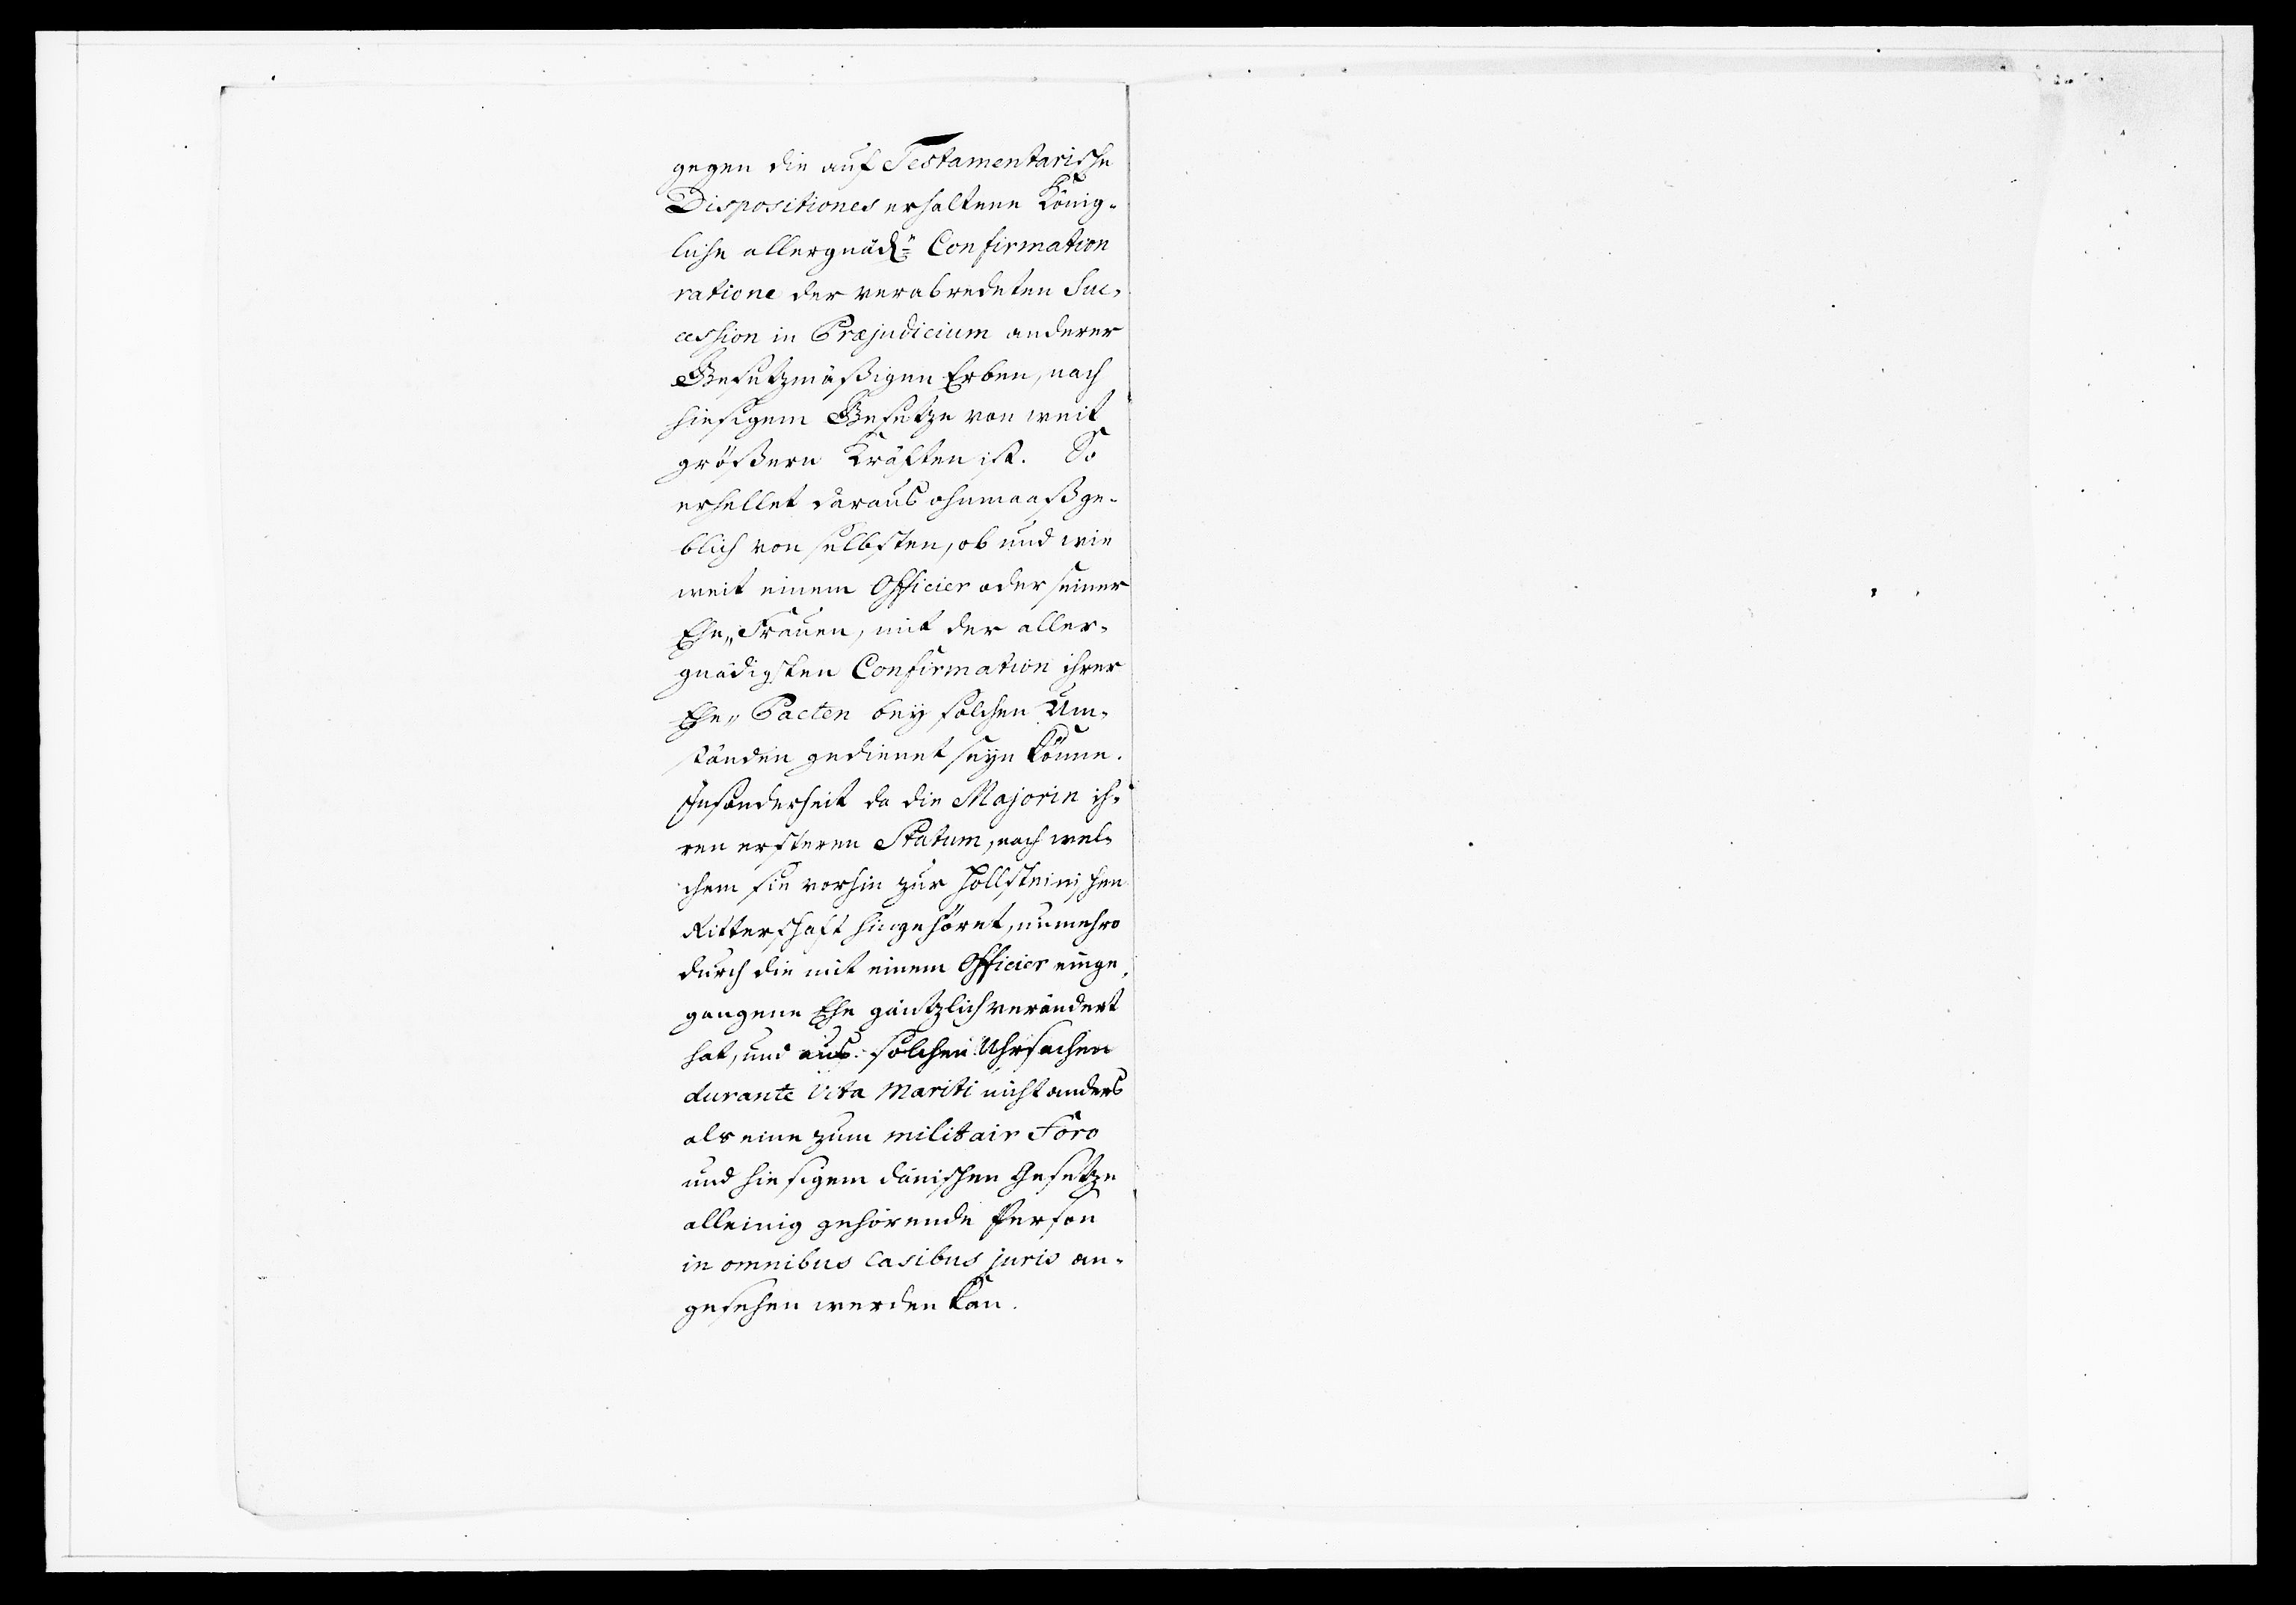 gegen die auf Testamentarische
Dispositiones erhaltene König-
liche allergnäd: Confirmation
ratione der verabredeten Suc-
cession in Præjudicium anderer
Gesetzmäßigen Erben, nach
hiesigem Gesetze von weit
größern Kräften ist. So
erhellet daraus ohnmaaßge-
blich von selbsten, ob und wie
weit einem Officier oder seiner
Ehe„Frauen, mit der aller-
gnädigsten Confirmation ihrer
Ehe„Pacten bey solchen Um-
ständen gedienet seyn könne.
Insonderheit da die Majorin ih-
ren ersteren Statum, nach wel-
chem sie vorhin zur Hollsteinischen
Ritterschaft hingehöret, nunmehro
durch die mit einem Officier einge-
gangene Ehe gäntzlich verändert
hat, und aus solchen Uhrsachen
durante vita Mariti nicht anders
als eine zum militair Foro
und hiesigem dänischen Gesetze
alleinig gehörende Person
in omnibus casibus juris an-
gesehen werden kan.